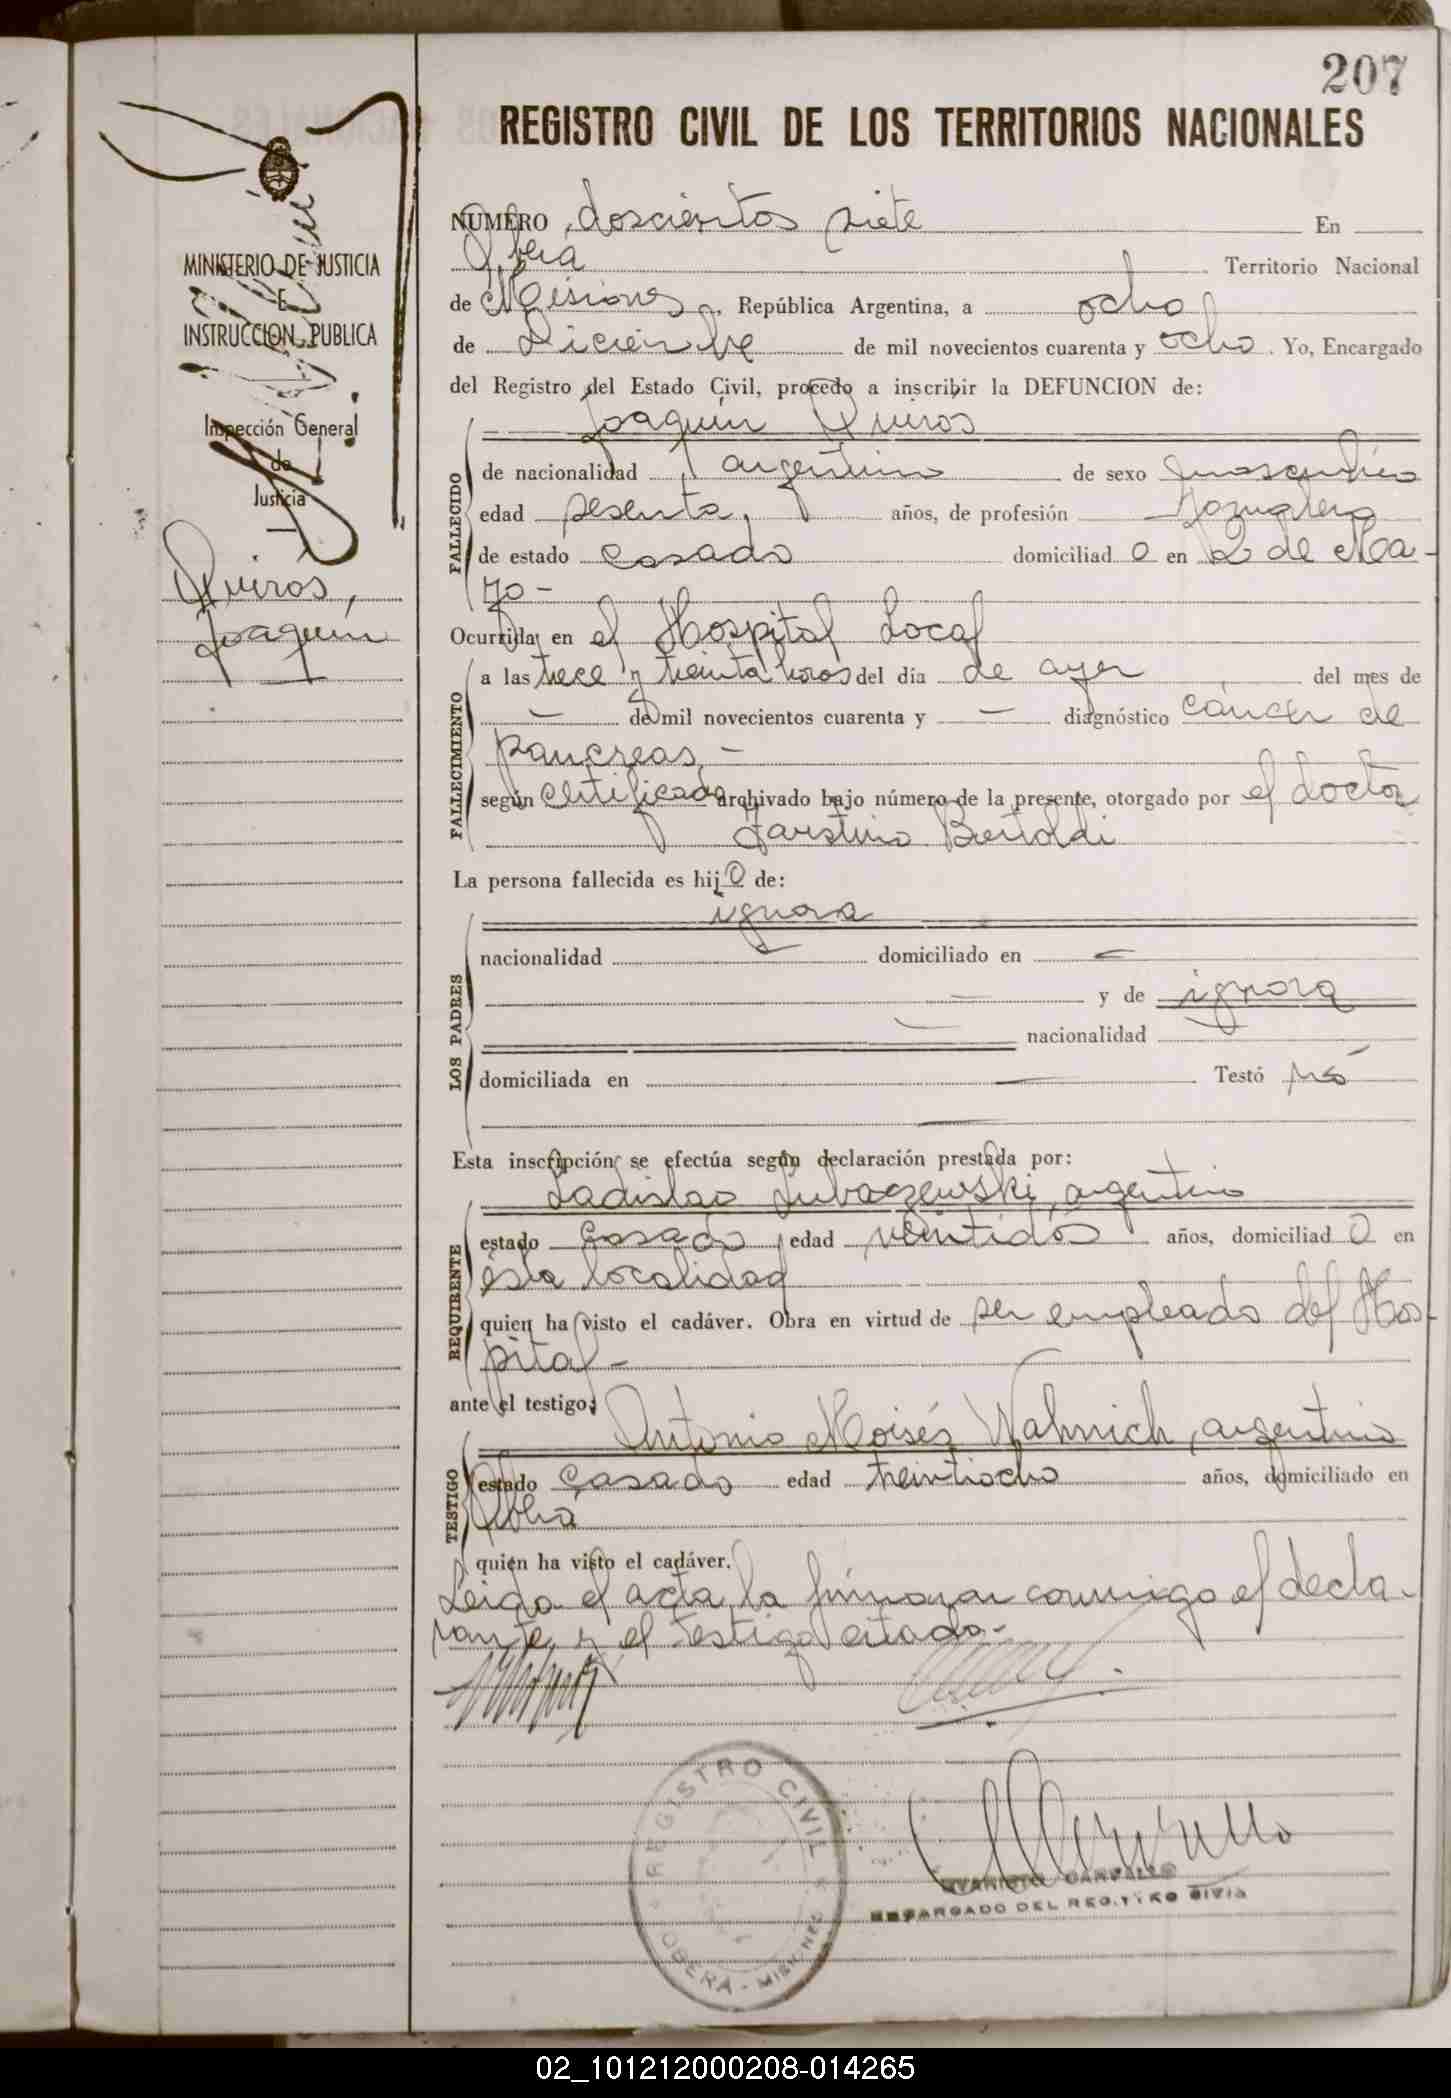 207
REGISTRO CIVIL DE LOS TERRITORIOS NACIONALES
MINISTERIO DE JUSTICIA
E
INSTRUCCION PUBLICA
Inspección General
de
Justicia
Quiros,
Joaquín
NUMERO doscientos siete En
Oberá Territorio Nacional
de Misiones, República Argentina, a ocho
de Diciembre de mil novecientos cuarenta y ocho. Yo, Encargado
del Registro del Estado Civil, procedo a inscribir la DEFUNCION de:
Joaquín Quiros
FALLECIDO
de nacionalidad argentino de sexo masculino
edad sesenta, años, de profesión Jornalero
de estado casado domiciliado en 2 de Ma-
yo-
Ocurrida en el Hospital Local
FALLECIMIENTO
a las trece y treinta horas del día de ayer del mes de
— de mil novecientos cuarenta y — diagnóstico cáncer de
pancreas.-
según certificado archivado bajo número de la presente, otorgado por el doctor
Faustino Bertoldi
La persona fallecida es hijo de:
LOS PADRES
ignora
nacionalidad — domiciliado en —
— y de ignora
— nacionalidad —
domiciliada en — Testó nó
—
Esta inscripción se efectúa según declaración prestada por:
REQUIRENTE
Ladislao Lubaczewski, argentino
estado casado, edad veintidós años, domiciliado en
ésta localidad
quien ha visto el cadáver. Obra en virtud de ser empleado del Hos-
pital-
ante el testigo:
TESTIGO
Antonio Moisés Wahnich, argentino
estado casado edad treintiocho años, domiciliado en
Oberá
quien ha visto el cadáver.
Leida el acta la firman conmigo el decla-
rante y el testigo citado.-
REGISTRO CIVIL
OBERÁ - MISIONES
ENCARGADO DEL REGISTRO CIVIL
02_101212000208-014265